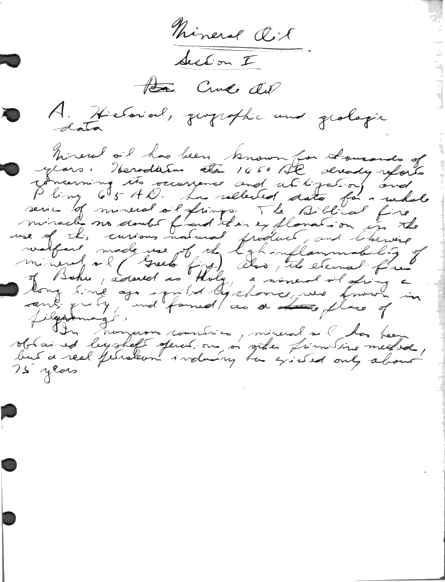 Mineral Oil
Section I
Crude Oil
A. Historical, geographic and geologic
data
Mineral oil has been known for thousands of
years. Herodotus 1450 BC already reports
concerning its occurrence and utilization, and
Pliny 65 A.D. has collected data for a whole
series of mineral oil springs. The Biblical fire
miracle no doubt found their explanation in the
use of this curious natural product, and likewise
warfare made use of the high inflammability of
mineral oil (Greek fire). Also, the eternal fires
of Baku, adored as Holy, a mineral oil spring a
long time ago ignited by chance, was known in
antiquity, and formed as a place of
pilgrimage.
In numerous countries, mineral oil has been
obtained by shaft operations or other primitive method,
but a real petroleum industry has existed only about
75 years